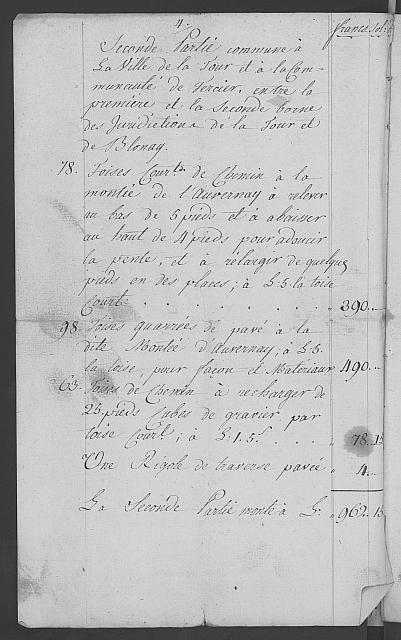 4.
francs. Sols
Seconde Partie commune à
La Ville de la Tour et à la Com-
munauté de Vercier, entre la
première et la Seconde borne
des Juridictions de la Tour et
de Blonay.
78. Toises Courtes de Chemin à la
montée de l'Auvernay à relever
au bas de 5 pieds et à abaisser
au haut de 4 pieds pour adoucir
la pente, et à rélarger de quelques
pieds en des places; à L. 5. la toise
Courte . . . . . . . . „ 390 „
98. Toises quarrées de pavé à la
dite Montée d'Auvernay; à L. 5.
la toise, pour façon et Matériaux 490 „
63. Toises de Chemin à recharger de
25 pieds Cubes de gravier par
toise Courte; à L. 1. 5 . . . . „ 78. 15
Une Rigole de traverse pavée „ 4 „
La Seconde Partie monte à L. „ 962. 15